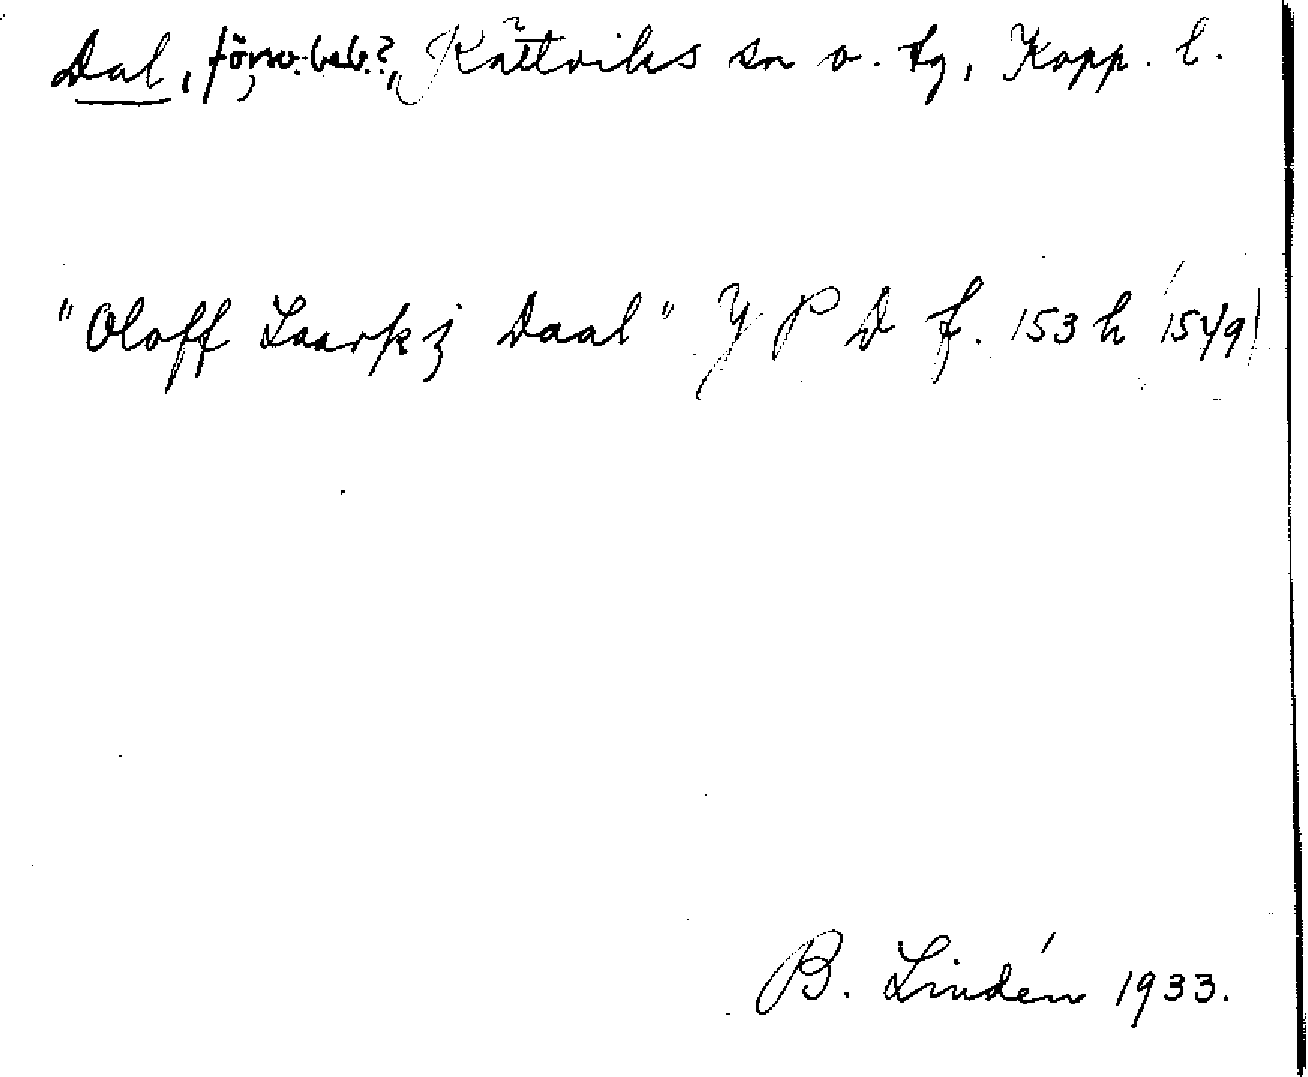 Dal, försv. beb.?, Rättviks sn o. tg, Kopp. l.
"Oloff Laarss j Daal" Y P D f. 153 h (1549)
B. Lindén 1933.